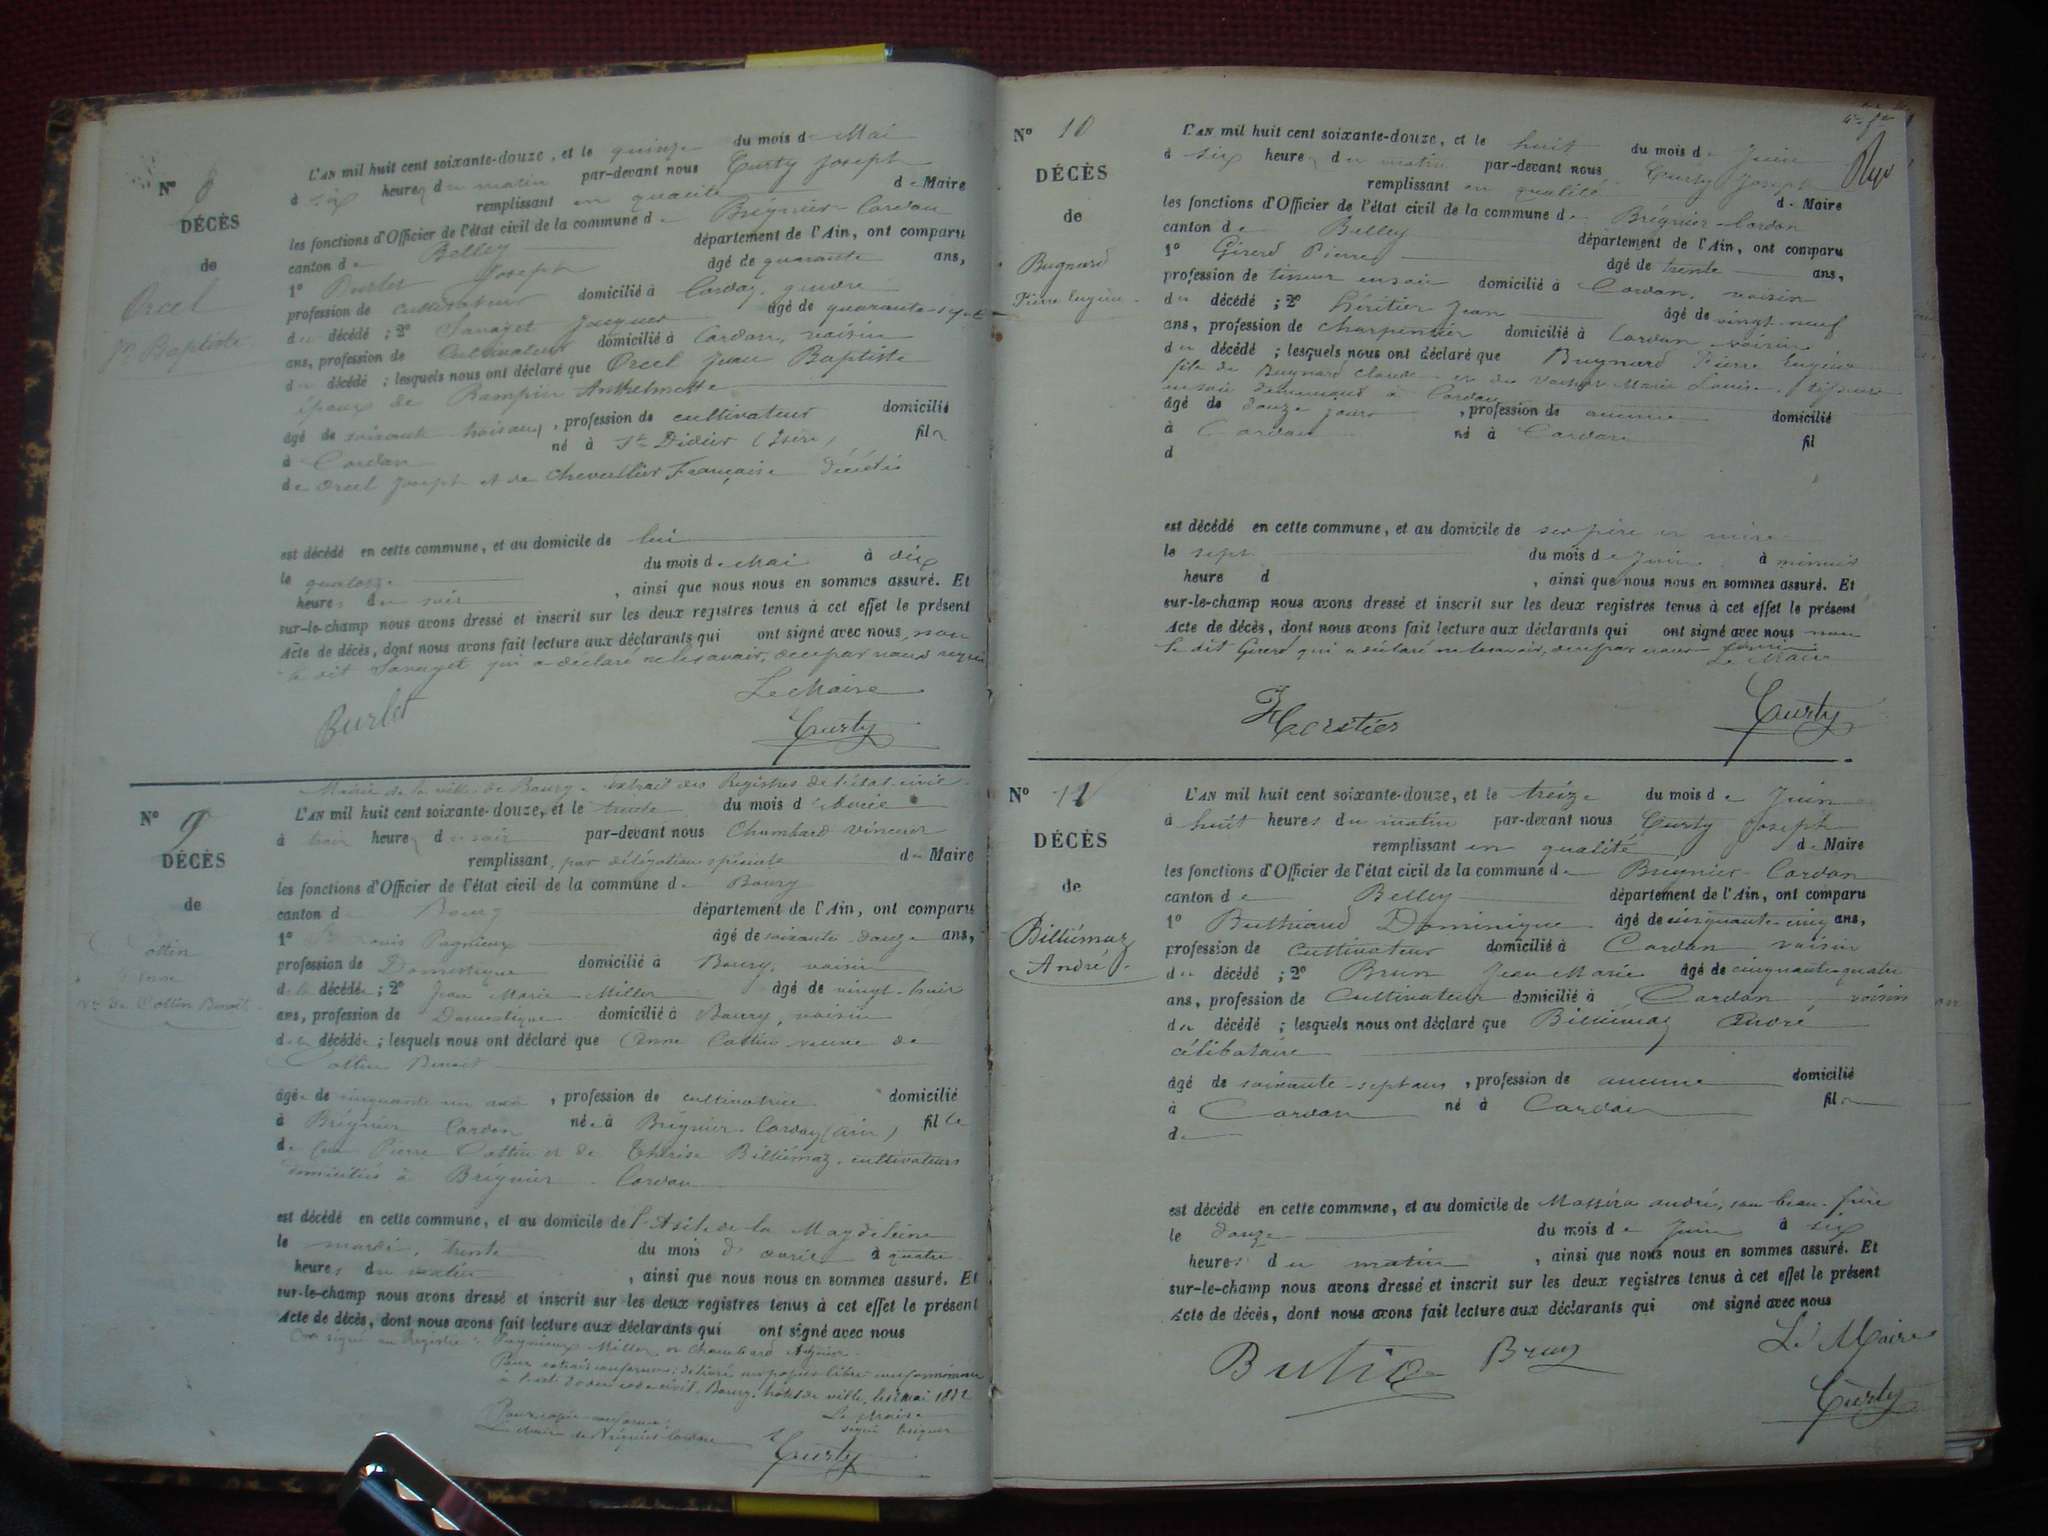 N° 8
DÉCÈS
de
Orcel
Jn Baptiste
L'AN mil huit cent soixante-douze, et le quinze du mois de Mai
à six heures du matin par-devant nous Curty Joseph
remplissant en qualité de Maire
les fonctions d'Officier de l'état civil de la commune de Brégnier-Cordon
canton de Belley département de l'Ain, ont comparu
1° Burlet Joseph âgé de quarante ans,
profession de cultivateur domicilié à Cordon, gendre
du décédé ; 2° Savaget Jacques âgé de quarante-sept
ans, profession de Cultivateur domicilié à Cordon, voisin
du décédé ; lesquels nous ont déclaré que Orcel Jean Baptiste
époux de Rampin Anthelmette
âgé de soixante trois ans, profession de cultivateur domicilié
à Cordon né à St Didier (Isère) fils
de Orcel Joseph et de Chevallier Françoise décédés
est décédé en cette commune, et au domicile de lui
le quatorze du mois de Mai à dix
heures du soir , ainsi que nous nous en sommes assuré. Et
sur-le-champ nous avons dressé et inscrit sur les deux registres tenus à cet effet le présent
Acte de décès, dont nous avons fait lecture aux déclarants qui ont signé avec nous, non
le dit Savaget qui a déclaré ne le savoir, de ce par nous requis
Le Maire
Burlet Curty
Mairie de la ville de Bourg. extrait des Registres de l'état civil.
N° 9
DÉCÈS
de
Cottin
Anne
Ve de Cottin Benoit
L'AN mil huit cent soixante-douze, et le trente du mois d'Avril
à trois heures du soir par-devant nous Chambard Vincent
remplissant par délégation spéciale du Maire
les fonctions d'Officier de l'état civil de la commune de Bourg
canton de Bourg département de l'Ain, ont comparu
1° Pugnieux âgé de soixante douze ans,
profession de Domestique domicilié à Bourg, voisin
de la décédée ; 2° Jean Marie Miller âgé de vingt-huit
ans, profession de Domestique domicilié à Bourg, voisin
de la décédée ; lesquels nous ont déclaré que Anne Cottin veuve de
Cottin Benoit
âgée de cinquante un ans , profession de cultivatrice domicilié
à Brégnier Cordon née à Brégnier-Cordon (Ain) fille
de feu Pierre Cottin et de Thérèse Billiémaz, cultivateurs
domiciliés à Brégnier-Cordon
est décédé en cette commune, et au domicile de l'Asile de la Magdeleine
le mardi, trente du mois d'avril à quatre
heures du matin , ainsi que nous nous en sommes assuré. Et
sur-le-champ nous avons dressé et inscrit sur les deux registres tenus à cet effet le présent
Acte de décès, dont nous avons fait lecture aux déclarants qui ont signé avec nous
Ont signé au Registre : Pugnieux Miller et Chambard Adjoint.
Pour extrait conforme, délivré sur papier libre conformément
à l'art. du code civil. Bourg, hôtel de ville, le mai 1872
Pour copie conforme Le Maire
Le Maire de Brégnier Cordon signé
Curty
N° 10
DÉCÈS
de
Bugnard
Pierre Eugène
L'AN mil huit cent soixante-douze, et le huit du mois de Juin
à six heures du matin par-devant nous Curty Joseph
remplissant en qualité de Maire
les fonctions d'Officier de l'état civil de la commune de Brégnier-Cordon
canton de Belley département de l'Ain, ont comparu
1° Girerd Pierre âgé de trente ans,
profession de tisseur en soie domicilié à Cordon, voisin
du décédé ; 2° Héritier Jean âgé de vingt-neuf
ans, profession de charpentier domicilié à Cordon voisin
du décédé ; lesquels nous ont déclaré que Bugnard Pierre Eugène
fils de Bugnard Claude et de Vacher Marie Louise, tisseurs
en soie demeurant à Cordon
âgé de douze jours , profession de aucune domicilié
à Cordon né à Cordon fil
d
est décédé en cette commune, et au domicile de ses père et mère
le sept du mois de Juin à minuit
heure d , ainsi que nous nous en sommes assuré. Et
sur-le-champ nous avons dressé et inscrit sur les deux registres tenus à cet effet le présent
Acte de décès, dont nous avons fait lecture aux déclarants qui ont signé avec nous non
le dit Girerd qui a déclaré ne le savoir, de ce par nous requis
Le Maire
Heretier Curty
N° 11
DÉCÈS
de
Billiémaz
André
L'AN mil huit cent soixante-douze, et le treize du mois de Juin
à huit heures du matin par-devant nous Curty Joseph
remplissant en qualité de Maire
les fonctions d'Officier de l'état civil de la commune de Brégnier-Cordon
canton de Belley département de l'Ain, ont comparu
1° Buthiaud Dominique âgé de cinquante-cinq ans,
profession de Cultivateur domicilié à Cordon voisin
du décédé ; 2° Brun Jean Marie âgé de cinquante-quatre
ans, profession de Cultivateur domicilié à Cordon, voisin
du décédé ; lesquels nous ont déclaré que Billiémaz André
célibataire
âgé de soixante-sept ans , profession de aucune domicilié
à Cordon né à Cordon fils
de
est décédé en cette commune, et au domicile de Massira André, son beau-frère
le douze du mois de Juin à six
heures du matin , ainsi que nous nous en sommes assuré. Et
sur-le-champ nous avons dressé et inscrit sur les deux registres tenus à cet effet le présent
Acte de décès, dont nous avons fait lecture aux déclarants qui ont signé avec nous
Le Maire
Butio Brun
Curty